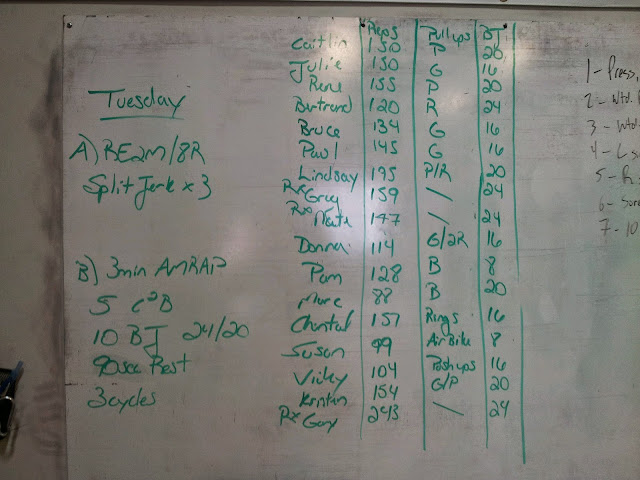 Tuesday
A) RE2M/8R
Split Jerk x 3
B) 3min AMRAP
5 C2B
10 BJ 24/20
90sec Rest
3 cycles
Reps Pullups BJ
Caitlin 150 P 20
Julie 150 G 16
Rene 155 P 20
Bertrand 120 R 24
Bruce 134 G 16
Paul 145 G 16
Lindsay 195 P/R 20
Rx Greg 159 / 24
Rx Nate 177 / 24
Donna 114 G/2R 16
Pam 128 B 8
Marc 88 B 20
Chantal 157 Rings 16
Susan 99 Air Bike 8
Vicky 104 Pushups 16
Kristan 154 G/P 20
Rx Gary 243 / 24
1 - Press,
2 - Wtd.
3 - Wtd
4 - L s
5 - R.
6 -
7 - 10